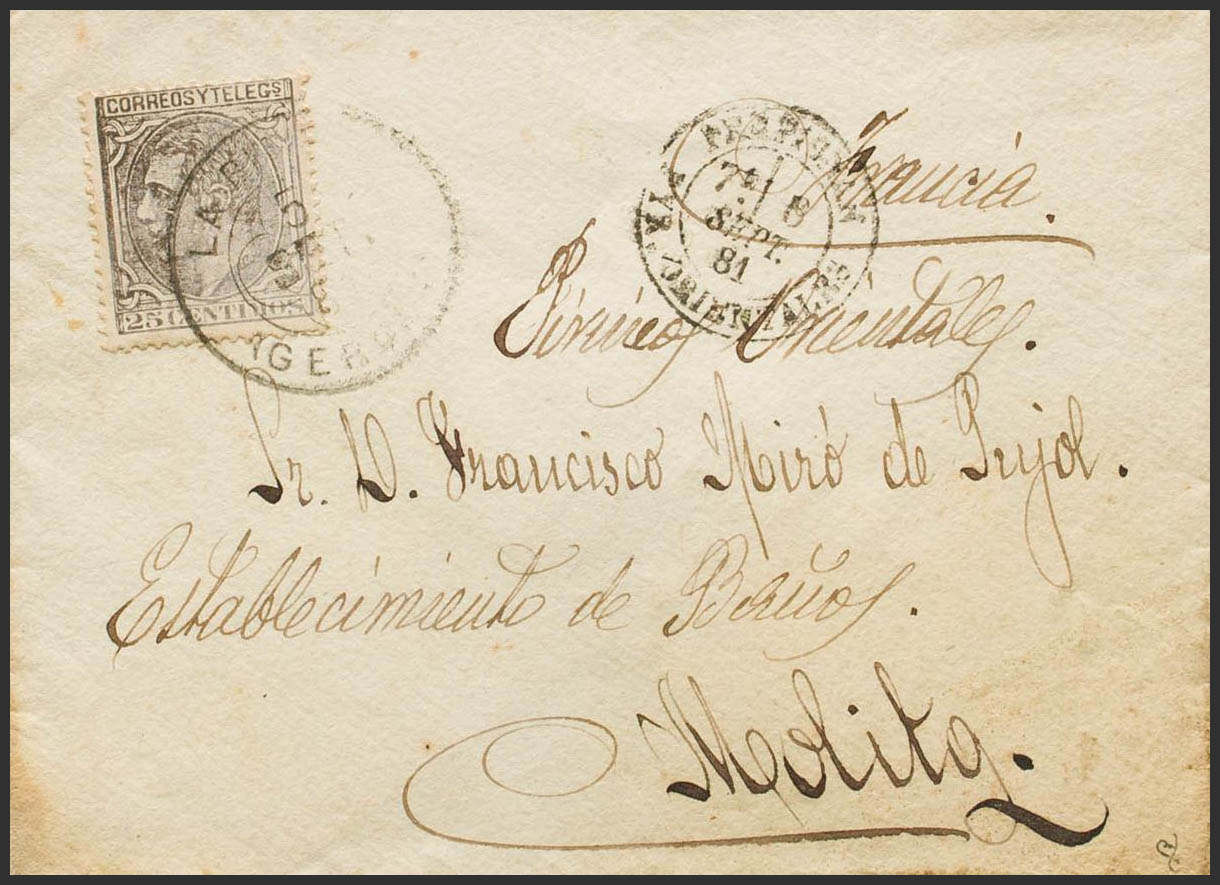 CORREOS Y TELEGS
25 CENTIMOS
LA B
GERONA
PERPIGNAN
7E 8
SEPT.
81
(PYR. ORIENTALES)
Francia.
Pirineos Orientales.
Sr. D. Francisco Miró de Pujol.
Establecimiento de Baños.
Molitg.